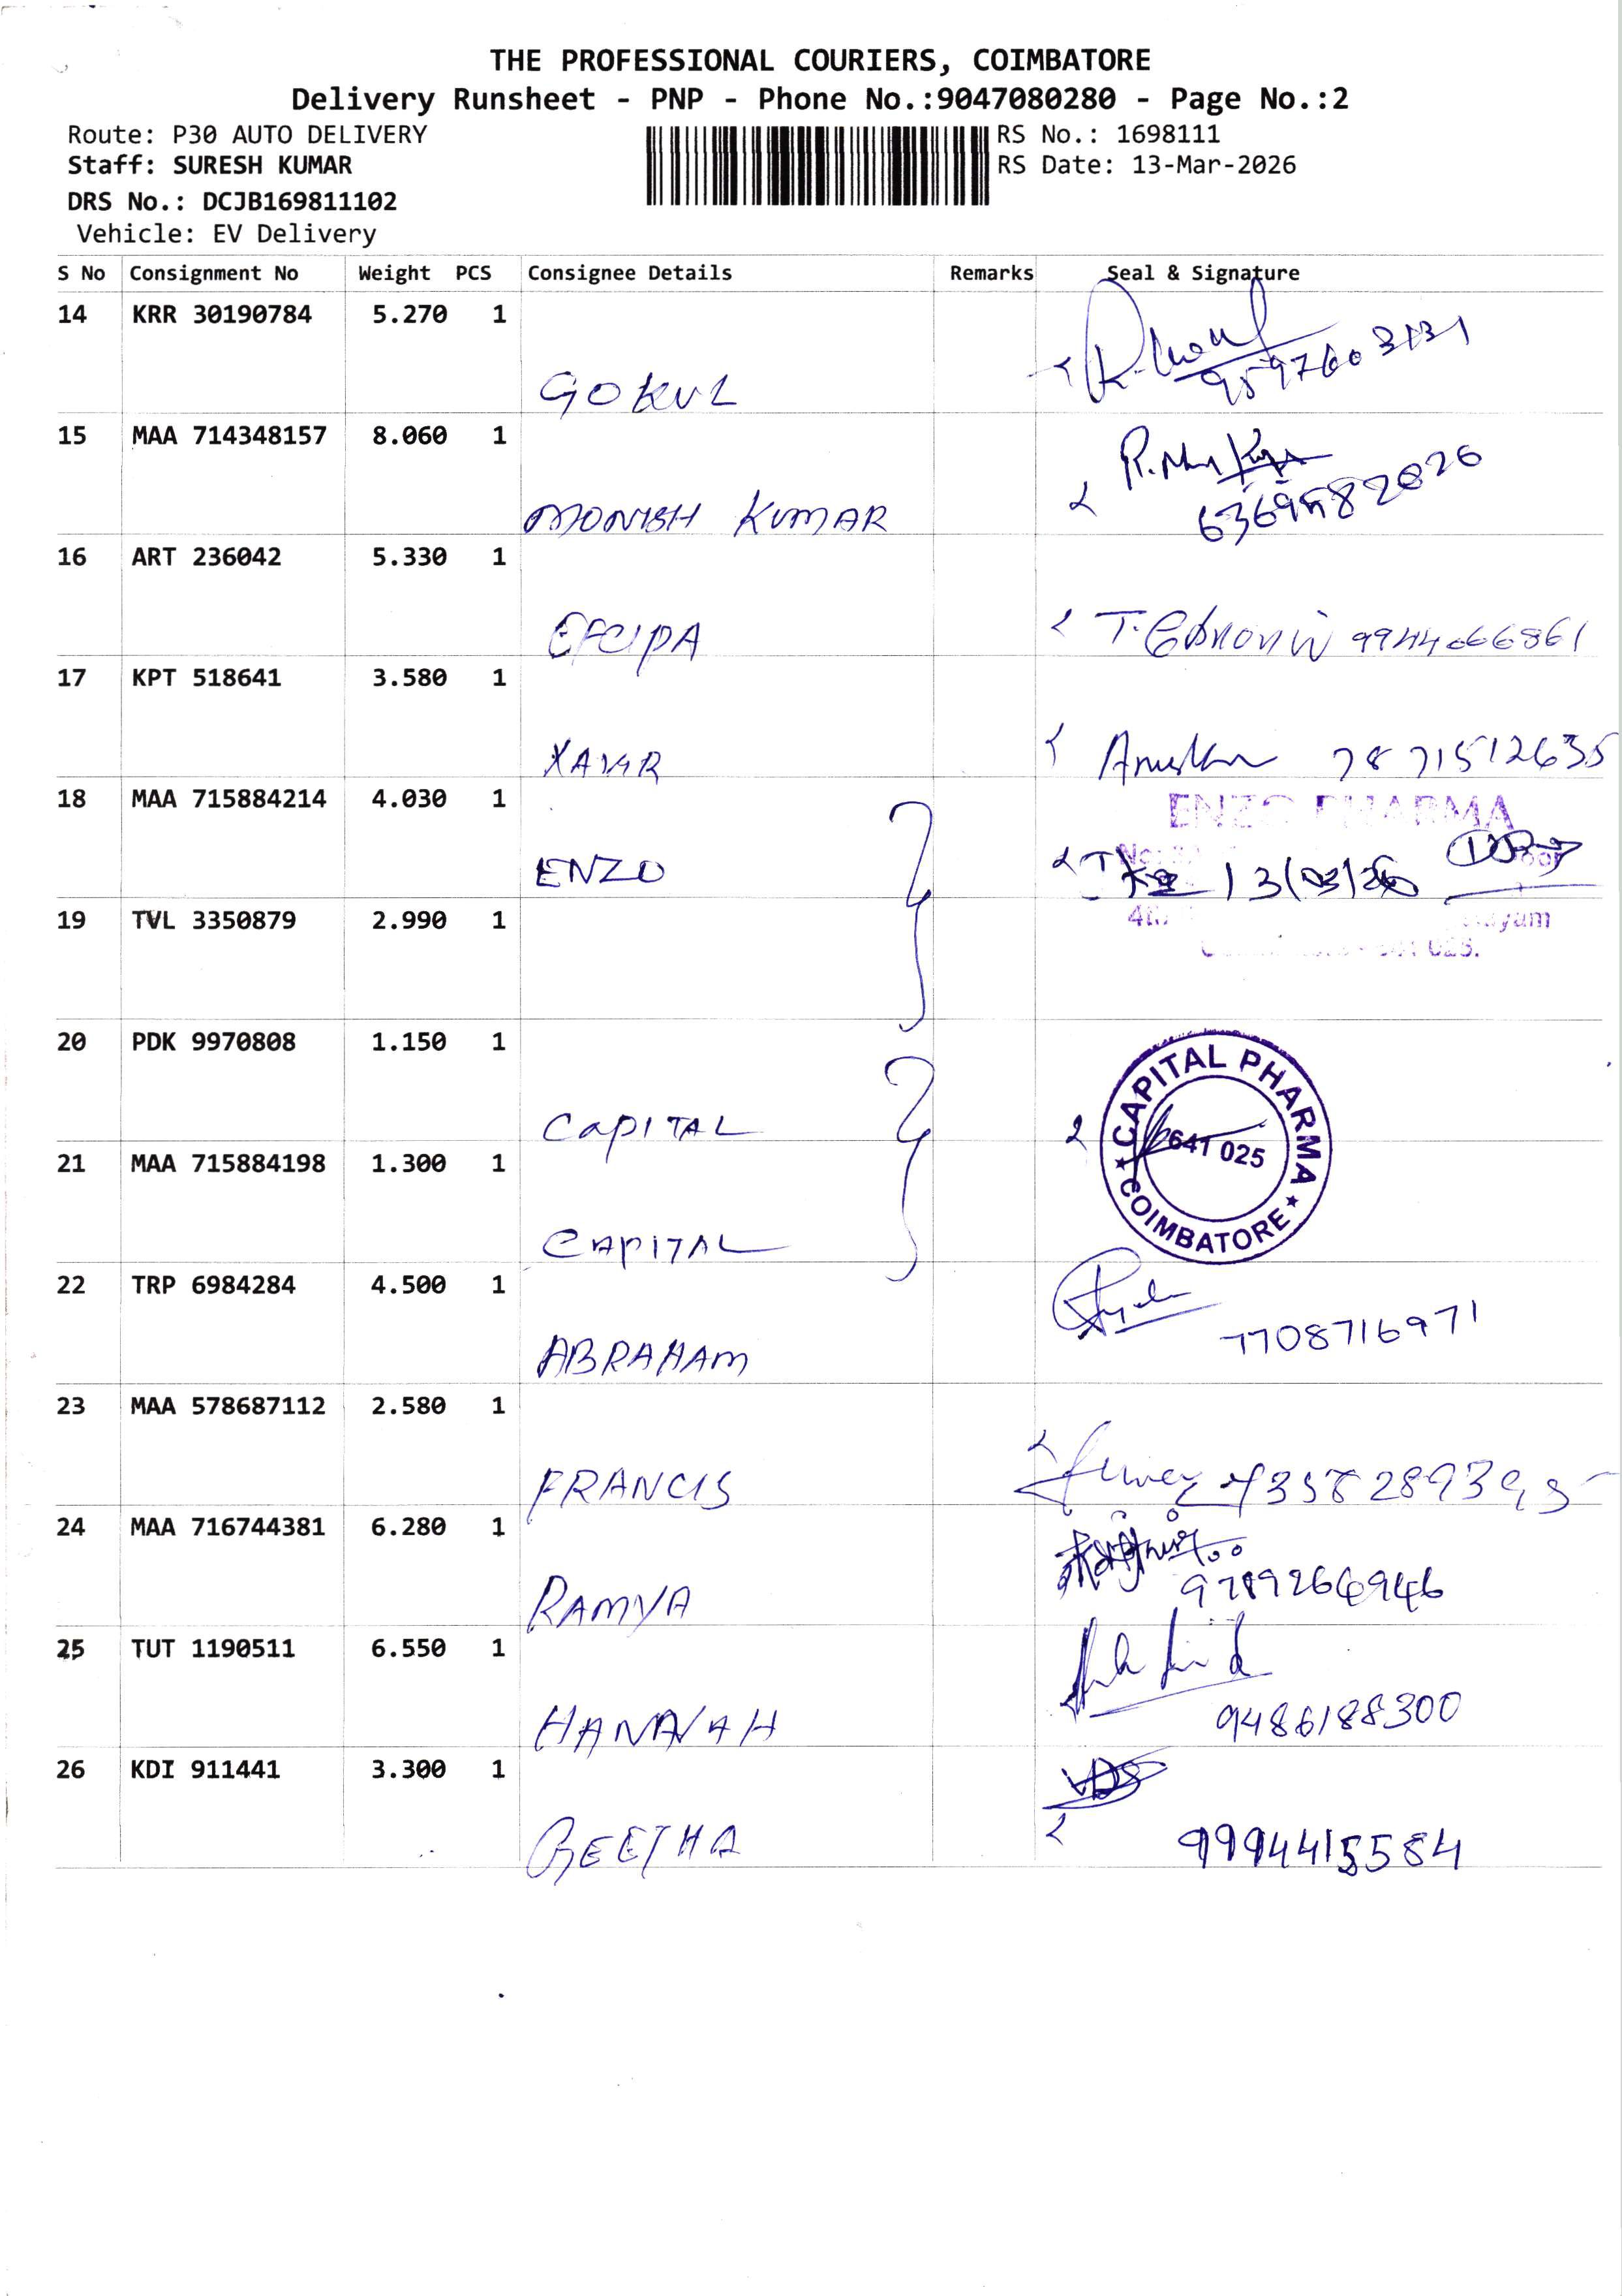 THE PROFESSIONAL COURIERS, COIMBATORE
Delivery Runsheet - PNP - Phone No.:9047080280 - Page No.:2
Route: P30 AUTO DELIVERY
RS No.: 1698111
Staff: SURESH KUMAR
RS Date: 13-Mar-2026
DRS No.: DCJB169811102
Vehicle: EV Delivery
S No Consignment No Weight PCS Consignee Details Remarks Seal & Signature
14 KRR 30190784 5.270 1
GOKUL 9597603131
15 MAA 714348157 8.060 1
MONISH KUMAR 6369582026
16 ART 236042 5.330 1
EFCIPA 9944066861
17 KPT 518641 3.580 1
XAVIR 7871512635
18 MAA 715884214 4.030 1
ENZO PHARMA
ENZO 13/03/26
19 TVL 3350879 2.990 1
20 PDK 9970808 1.150 1
CAPITAL
CAPITAL PHARMA
641 025
COIMBATORE
21 MAA 715884198 1.300 1
CAPITAL
22 TRP 6984284 4.500 1
ABRAHAM 7708716971
23 MAA 578687112 2.580 1
FRANCIS
24 MAA 716744381 6.280 1
RAMYA 9789264946
25 TUT 1190511 6.550 1
HANNAH 9486188300
26 KDI 911441 3.300 1
GEETHA 9994415584